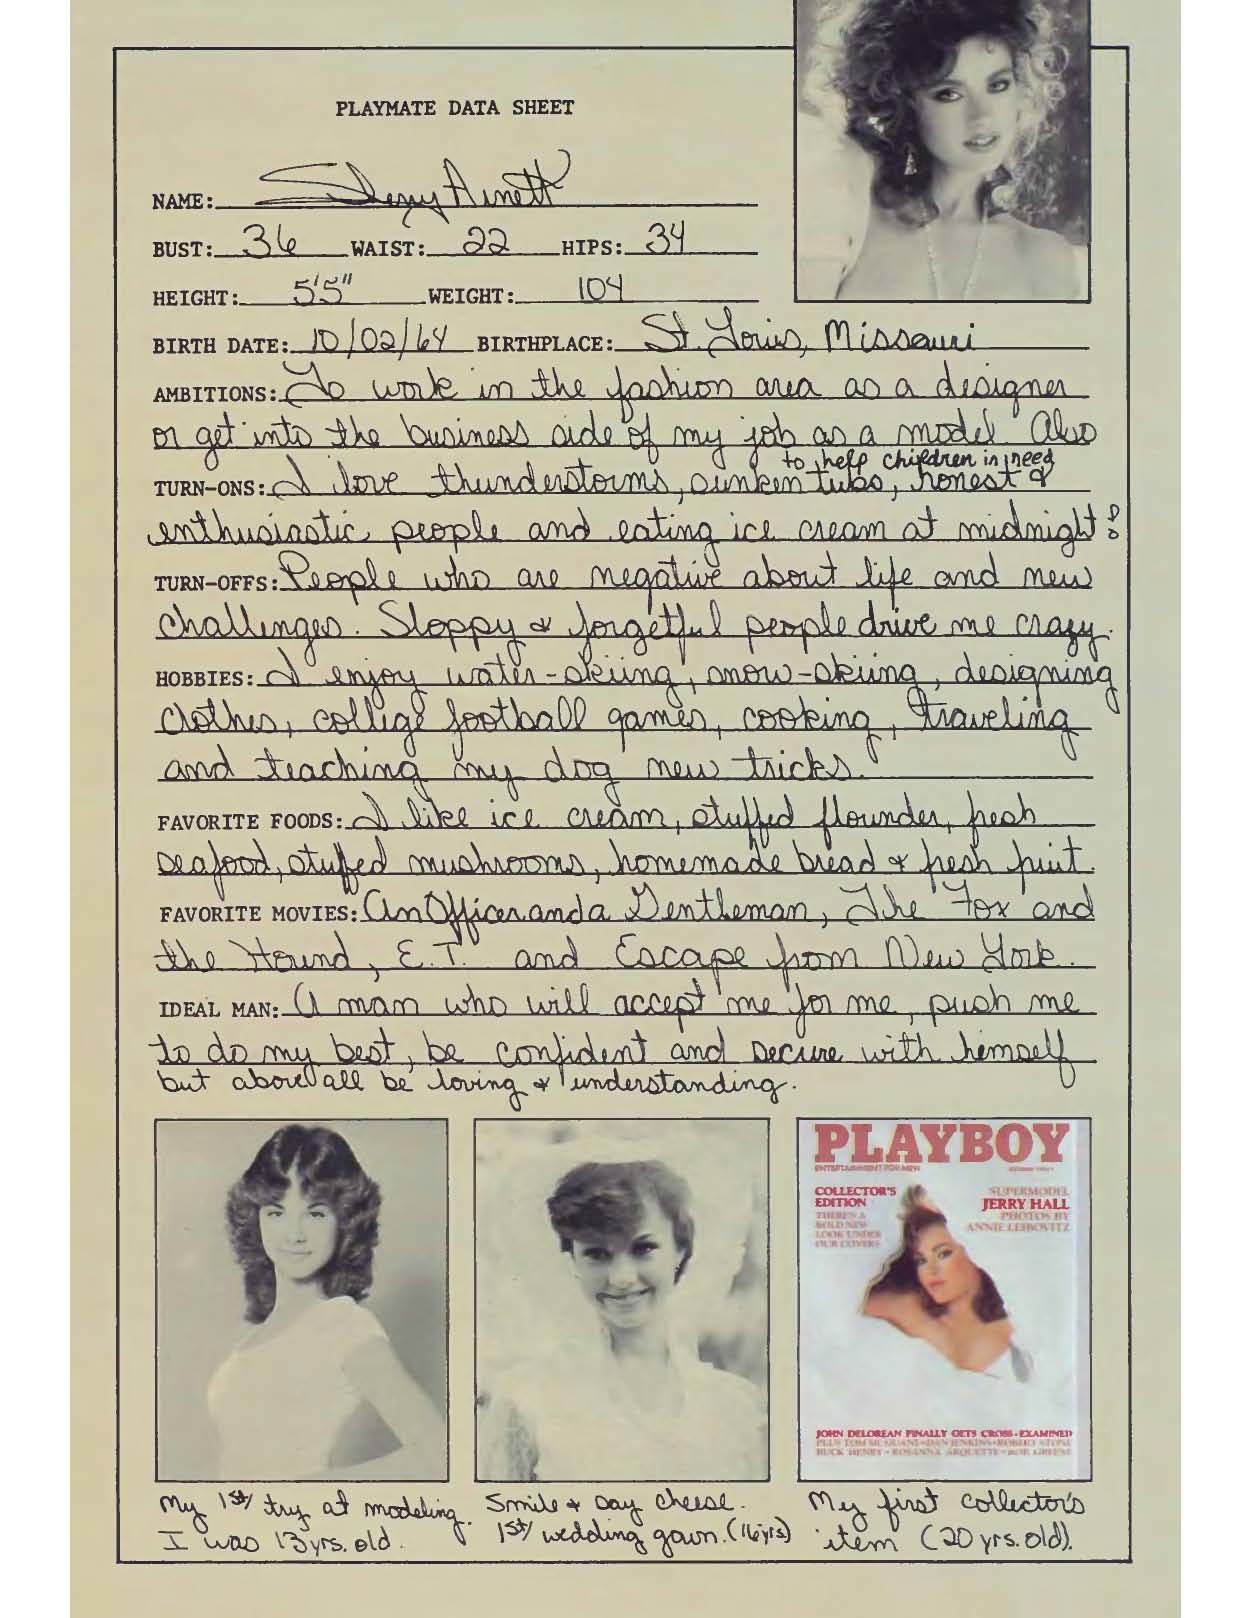 PLAYMATE DATA SHEET
NAME: Sherry Arnett
BUST: 36 WAIST: 22 HIPS: 34
HEIGHT: 5'5" WEIGHT: 104
BIRTH DATE: 10/02/64 BIRTHPLACE: St. Louis, Missouri
AMBITIONS: To work in the fashion area as a designer
or get into the business side of my job as a model. Also
to help children in need
TURN-ONS: I love thunderstorms, sunken tubs, honest &
enthusiastic people and eating ice cream at midnight!
TURN-OFFS: People who are negative about life and new
challenges. Sloppy & forgetful people drive me crazy.
HOBBIES: I enjoy water-skiing, snow-skiing, designing
clothes, college football games, cooking, traveling
and teaching my dog new tricks.
FAVORITE FOODS: I like ice cream, stuffed flounder, fresh
seafood, stuffed mushrooms, homemade bread & fresh fruit.
FAVORITE MOVIES: An Officer and a Gentleman, The Fox and
the Hound, E.T. and Escape from New York.
IDEAL MAN: A man who will accept me for me, push me
to do my best, be confident and secure with himself
but above all be loving & understanding.
PLAYBOY
ENTERTAINMENT FOR MEN
COLLECTOR'S
EDITION
THERE'S A
BOLD NEW
LOOK UNDER
OUR COVERS
SUPERMODEL
JERRY HALL
PHOTOS BY
ANNIE LEIBOVITZ
JOHN DELOREAN FINALLY GETS CROSS-EXAMINED
PLUS TOM MCGUANE • DAN JENKINS • ROBERT STONE
BUCK HENRY • ROSANNA ARQUETTE • BOB GREENE
My 1st try at modeling.
I was 13 yrs. old.
Smile & say cheese.
1st wedding gown. (16 yrs)
My first collector's
item (20 yrs. old).